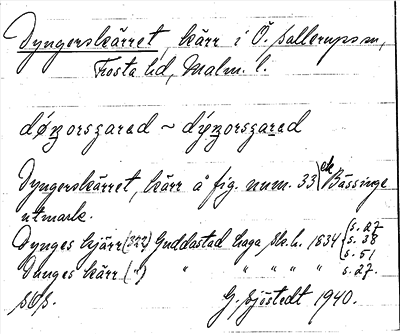 Dyngerskärret, kärr i Ö. Sallerups sn,
Frosta hd, Malm. l.
Dyngerskärret, kärr å fig. num. 33) Bässinge
utmark.
Dynges kjärr (322) Guddastad laga sk. h. 1834 { s. 27
s. 38
s. 51
Dunges kärr (") " " " " " s. 27.
G. Sjöstedt 1940.